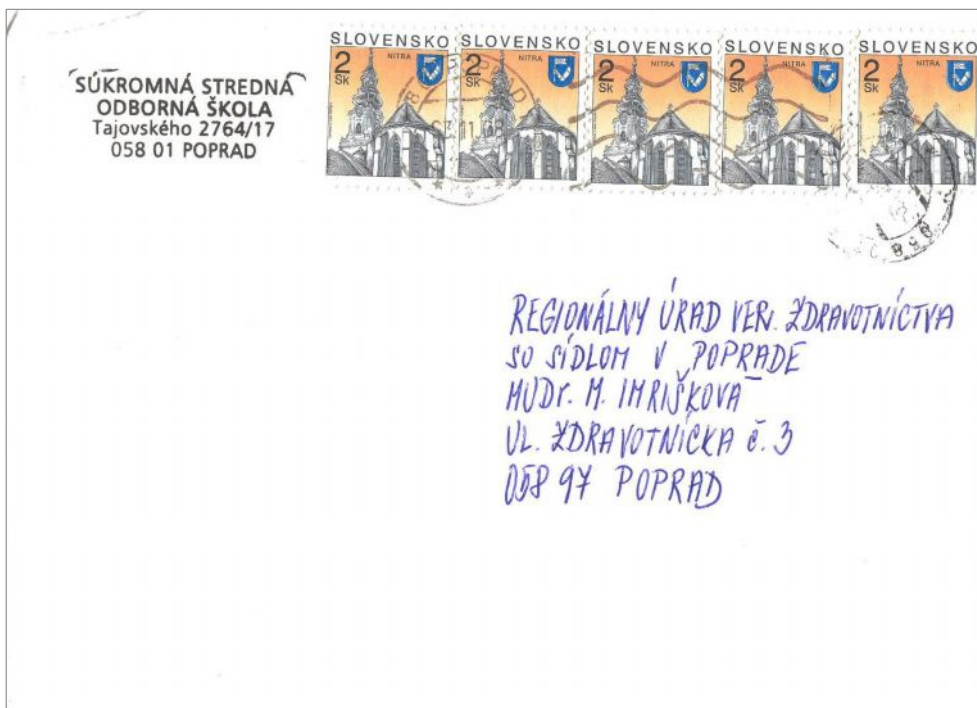 SÚKROMNÁ STREDNÁ
ODBORNÁ ŠKOLA
Tajovského 2764/17
058 01 POPRAD
SLOVENSKO SLOVENSKO SLOVENSKO SLOVENSKO SLOVENSKO
2 Sk NITRA 2 Sk NITRA 2 Sk NITRA 2 Sk NITRA 2 Sk NITRA
REGIONÁLNY ÚRAD VER. ZDRAVOTNÍCTVA
SO SÍDLOM V POPRADE
MUDr. M. IMRIŠKOVÁ
UL. ZDRAVOTNÍCKA č. 3
058 97 POPRAD